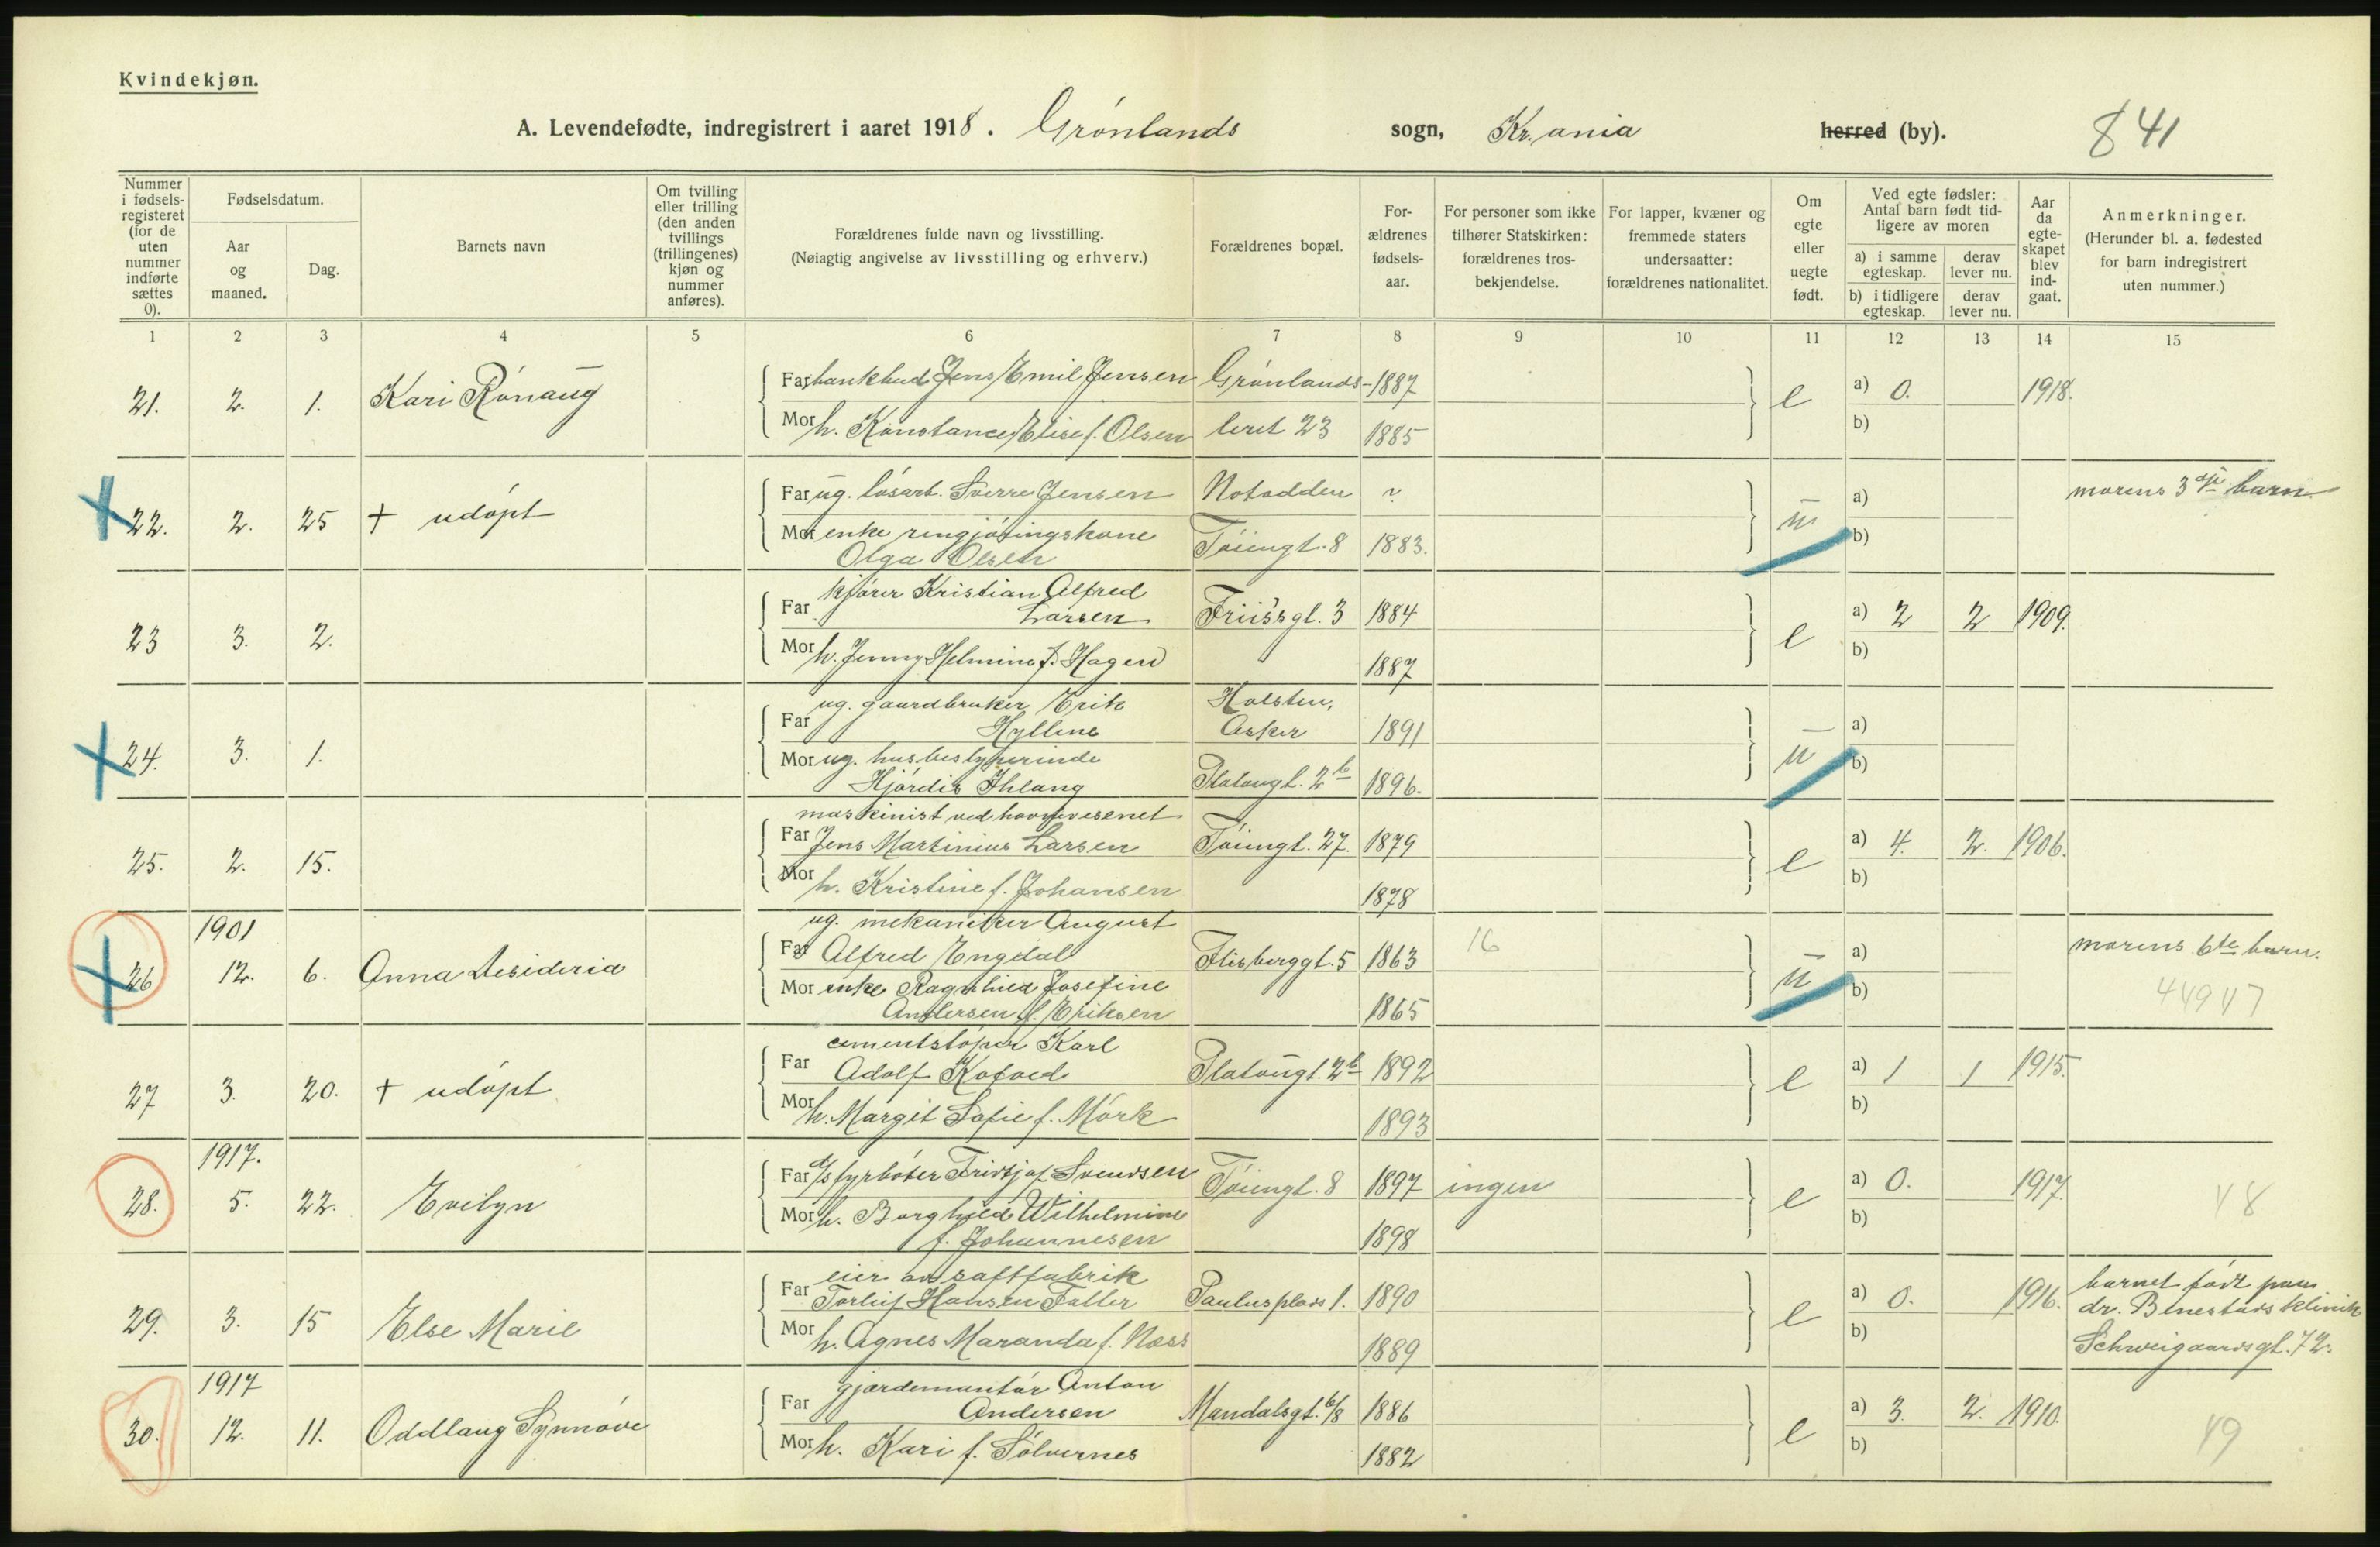 Kvindekjøn.
A. Levendefødte, indregistrert i aaret 1918. Grønlands sogn, Kr.ania herred (by). 841
Nummer i fødsels-registeret (for de uten nummer indførte sættes 0).
Fødselsdatum.
Aar og maaned.
Dag.
Barnets navn
Om tvilling eller trilling (den anden tvillings (trillingenes) kjøn og nummer anføres).
Forældrenes fulde navn og livsstilling. (Nøiagtig angivelse av livsstilling og erhverv.)
Forældrenes bopæl.
For-ældrenes fødsels-aar.
For personer som ikke tilhører Statskirken: forældrenes tros-bekjendelse.
For lapper, kvæner og fremmede staters undersaatter: forældrenes nationalitet.
Om egte eller uegte født.
Ved egte fødsler: Antal barn født tid-ligere av moren
a) i samme egteskap.
derav lever nu.
b) i tidligere egteskap.
derav lever nu.
Aar da egte-skapet blev ind-gaat.
Anmerkninger. (Herunder bl. a. fødested for barn indregistrert uten nummer.)
1 2 3 4 5 6 7 8 9 10 11 12 13 14 15
21. 2. 1. Kari Rónaug
Far bankbud Jens Emil Jensen Grønlands- 1887
Mor h. Konstance Elise f. Olsen leret 23 1885
e a) 0. b) 1918.
22. 2. 25 + udópt
Far ug. lósarb. Sverre Jensen Notodden ?
Mor enke rengjóringskone Olga Olsen Tóiengt. 8 1883.
u a) b) morens 3dje barn
23 3. 2.
Far kjórer Kristian Alfred Larsen Friisgt. 3 1884
Mor h. Jenny Helmine f. Hagen 1887
e a) 2 2 b) 1909.
24. 3. 1.
Far ug. gaardbruker Erik Hylline Holsten, Asker 1891
Mor ug. husbestyrerinde Hjórdis Ihlang Platougt. 2b 1896.
u a) b)
25. 2. 15.
maskinist ved havnevesenet
Far Jens Martinius Larsen Tóiengt. 27. 1879
Mor h. Kristine f. Johansen 1878
e a) 4. 2. b) 1906.
26 1901 12. 6. Anna Desideria
ug. mekaniker August
Far Alfred Engdal Flisberggt. 5 1863 16
Mor enke Ragnhild Josefine Andersen f. Eriksen 1865
u a) b) morens 6te barn.
44947
27 3. 20. + udópt
cementstóper Karl
Far Adolf Kofoed Platougt. 2b 1892
Mor h. Margit Sofie f. Mórk 1893
e a) 1 1 b) 1915.
28. 1917. 5. 22. Evelyn
Far d/s fyrbóter Fridtjof Svendsen Tóiengt. 8 1897 ingen
Mor h. Borghild Wilhelmine f. Johannesen 1898
e a) 0. b) 1917. 48
29. 3. 15 Else Marie
eier av saftfabrik
Far Torleif Hansen Faller Paulus plads 1. 1890
Mor h. Agnes Maranda f. Næss 1889
e a) 0. b) 1916. barnet født paa dr. Benestads klinik Schweigaardsgt. 72.
30. 1917 12. 11. Oddlaug Synnóve
gjærdemontór Anton
Far Andersen Mandalsgt. 6/8 1886
Mor h. Kari f. Sólvernes 1882
e a) 3. 2. b) 1910. 49